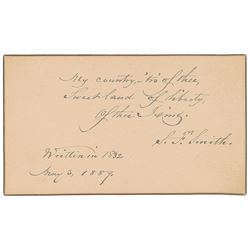 My country, 'tis of thee,
Sweet land of liberty,
Of thee I sing.
S. F. Smith.
Written in 1832
May 3, 1889.